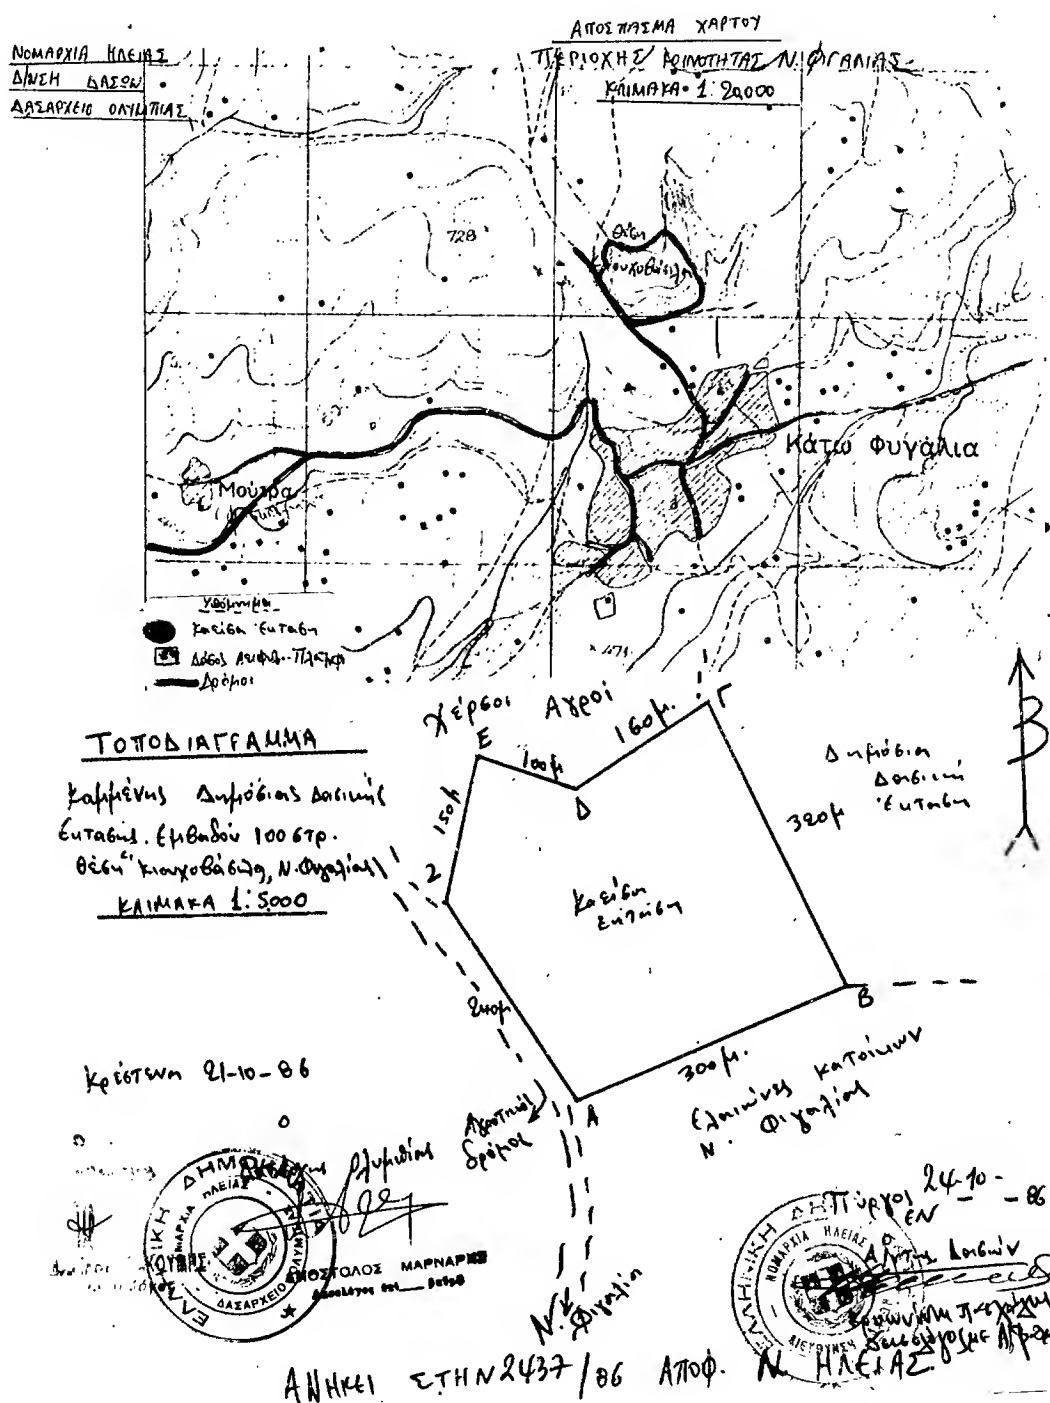 ΝΟΜΑΡΧΙΑ ΗΛΕΙΑΣ
Δ/ΝΣΗ ΔΑΣΩΝ
ΔΑΣΑΡΧΕΙΟ ΟΛΥΜΠΙΑΣ
ΑΠΟΣΠΑΣΜΑ ΧΑΡΤΟΥ
ΠΕΡΙΟΧΗΣ ΚΟΙΝΟΤΗΤΑΣ Ν. ΦΙΓΑΛΙΑΣ
ΚΛΙΜΑΚΑ 1:20000
728
Θέση
Κιουχοβάσιλα
Κάτω Φυγάλια
Μούτρα
Υπόμνημα
Καείσα Έκταση
Δάσος
Δρόμοι
ΤΟΠΟΔΙΑΓΡΑΜΜΑ
Καμμένης Δημόσιας Δασικής
Εκτασης. Εμβαδού 100 στρ.
Θέση Κιουχοβάσιλα, Ν. Φιγαλίας
ΚΛΙΜΑΚΑ 1:5000
Χέρσοι Αγροί
Ε
100μ
Δ
160μ.
Γ
150μ
Ζ
320μ
Δημόσια
Δασική
Έκταση
Β
Καείσα
Εκταση
240μ
300μ.
Β
Α
Ελαιώνες κατοίκων
Ν. Φιγαλίας
Αγροτικός
δρόμος
Ν. Φιγαλία
Κρέστενα 21-10-86
Ολυμπίας
ΕΛΛΗΝΙΚΗ ΔΗΜΟΚΡΑΤΙΑ
ΝΟΜΑΡΧΙΑ ΗΛΕΙΑΣ
ΔΑΣΑΡΧΕΙΟ ΟΛΥΜΠΙΑΣ
ΑΠΟΣΤΟΛΟΣ ΜΑΡΝΑΡΗΣ
Πύργος 24-10-86
Ο
Δ/ντης Δασών
ΝΟΜΑΡΧΙΑ ΗΛΕΙΑΣ
ΑΝΗΚΕΙ ΣΤΗΝ 2437/86 ΑΠΟΦ. Ν. ΗΛΕΙΑΣ